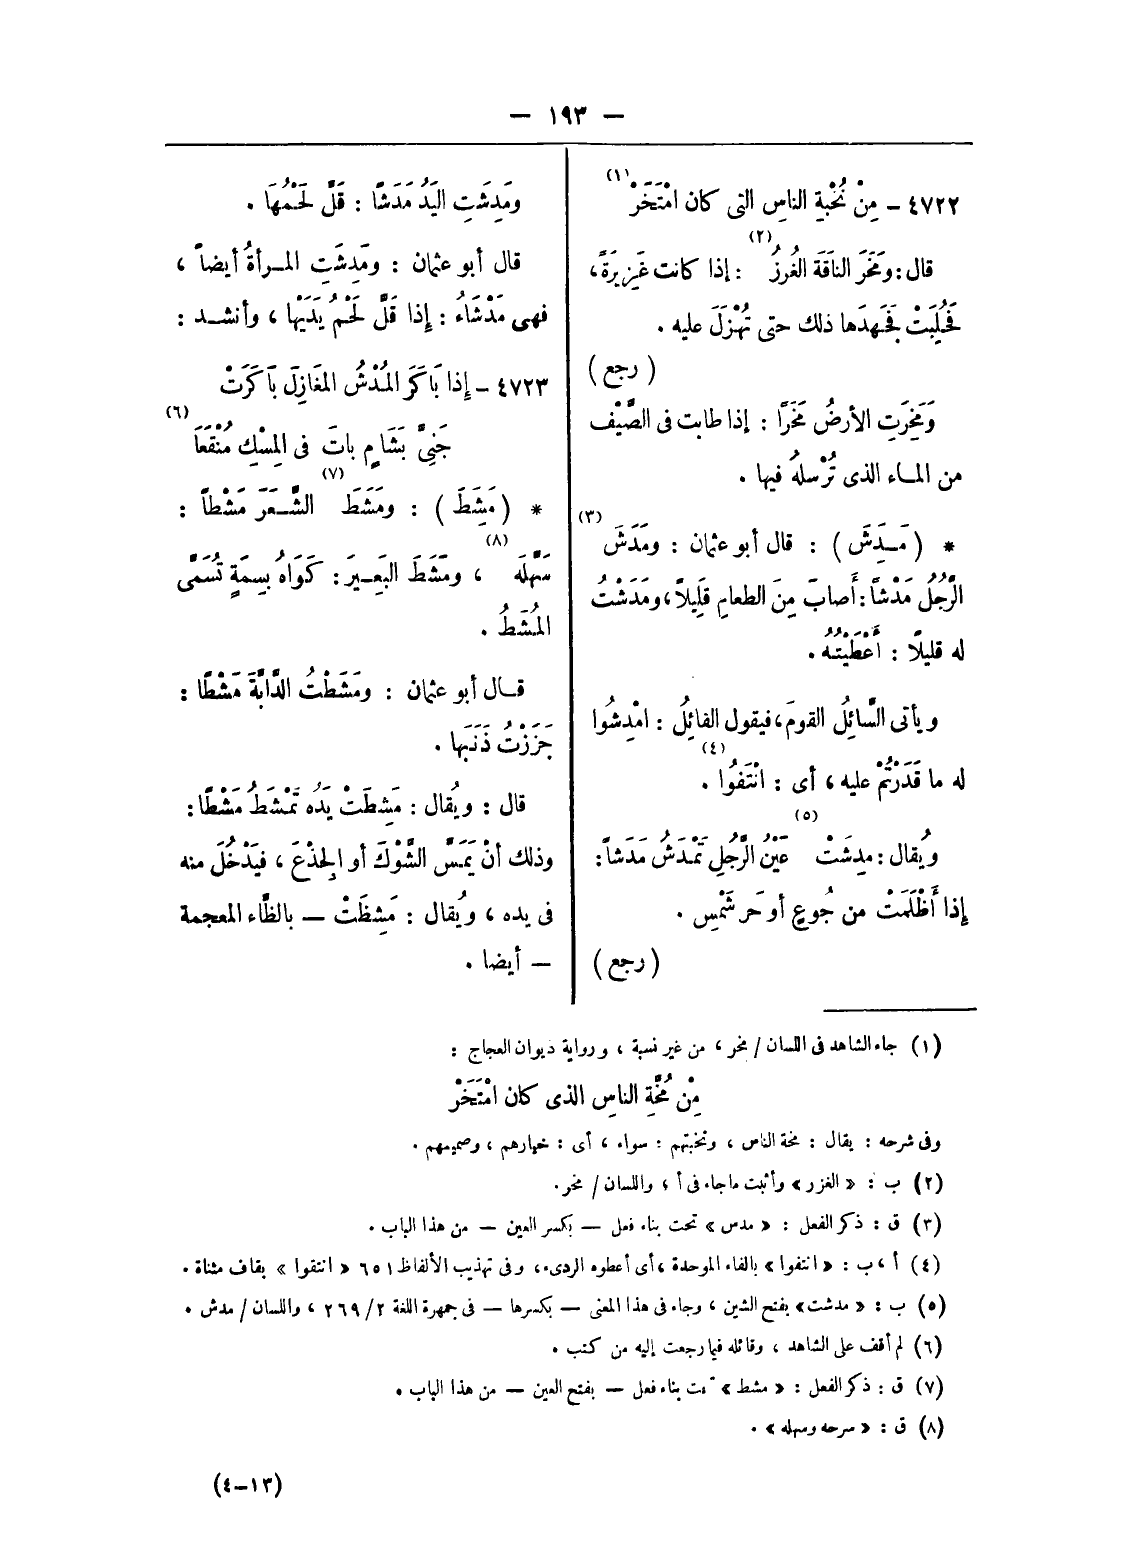 — ١٩٣ —
٤٧٢٢ – مِنْ نُخْبةِ الناسِ التى كان امْتَخَرْ (١)
قال: ومَخَرَ الناقَة الغُرزُ (٢) : إذا كانت غَزِيرَةً،
فَحُلِبَتْ فَجَهدَها ذلك حتى تُهْزَلَ عليه .
( رجع )
وَمَخِرَتِ الأرضُ مَخَرًا : إذا طابت فى الصَّيْف
من المـاء الذى تُرْسلهُ فيها .
* ( مَـدِشَ ) : قال أبو عثمان : ومَدَشَ (٣)
الرَّجُلُ مَدْشاً: أَصابَ مِنَ الطعامِ قَلِيلاً، ومَدَشْتُ
له قليلًا : أَعْطَيْتُه .
ويأتى السَّائِلُ القومَ، فيقول القائِلُ : امْدِشُوا
له ما قَدَرْتُمْ عليه ، أى : انْتَفُوا (٤) .
ويُقال: مدِشَتْ (٥) عَيْنُ الرَّجُلِ تَمْدَشُ مَدَشاً:
إذا أَظْلَمَتْ من جُوعٍ أو حَر شَمْسٍ .
( رجع )
ومَدِشَتِ اليَدُ مَدَشًا : قَلَّ لَحْمُهَا .
قال أبو عثمان : ومَدِشَتِ المـرأةُ أيضاً ،
فهى مَدْشَاءُ : إِذا قَلَّ لَحْمُ يَدَيْها ، وأنشـد :
٤٧٢٣ – إِذا بَاكَرَ المُدْشُ المَغَازِلَ بَاكَرَتْ
جَنِىَّ بَشَامٍ باتَ فى المِسْكِ مُنْقَعَا (٦)
* ( مَشِطَ ) : ومَشَطَ (٧) الشَّـعَرَ مَشْطاً :
سَهَّله (٨) ، ومَشَطَ البَعِـيرَ : كَوَاهُ بِسِمَةٍ تُسَمَّى
المُشطُ .
قـال أبو عثمان : ومَشَطْتُ الدَّابَّةَ مَشْطًا :
جَزَزْتُ ذَنَبَها .
قال : ويُقال : مَشِطَتْ يَدُه تَمْشَطُ مَشَطًا :
وذلك أنْ يَمَسَّ الشَّوْكَ أو الجِذْعَ ، فيَدْخُلَ منه
فى يده ، ويُقال : مَشِظَتْ — بالظَّاء المعجمة
— أيضا .
(١) جاء الشاهد فى اللسان / مخر ، من غير نسبة ، ورواية ديوان العجاج :
مِنْ مُخَّةِ الناسِ الذى كان امْتَخَرْ
وفى شرحه : يقال : مخة الناس ، ونخبتهم : سواء ، أى : خيارهم ، وصميمهم .
(٢) ب : « الغزر » وأثبت ما جاء فى أ ، واللسان / مخر.
(٣) ق : ذكر الفعل : « مدس » تحت بناء فعل — بكسر العين — من هذا الباب .
(٤) أ ، ب : « انتفوا » بالفاء الموحدة ، أى أعطوه الردىء، وفى تهذيب الألفاظ ٦٥١ « انتقوا » بقاف مثناة .
(٥) ب : « مدشت» بفتح الشين ، وجاء فى هذا المعنى — بكسرها — فى جمهرة اللغة ٢/ ٢٦٩ ، واللسان / مدش .
(٦) لم أقف على الشاهد ، وقائله فيما رجعت إليه من كتب .
(٧) ق : ذكر الفعل : « مشط » تحت بناء فعل — بفتح العين — من هذا الباب .
(٨) ق : « سرحه وسهله » .
(١٣–٤)